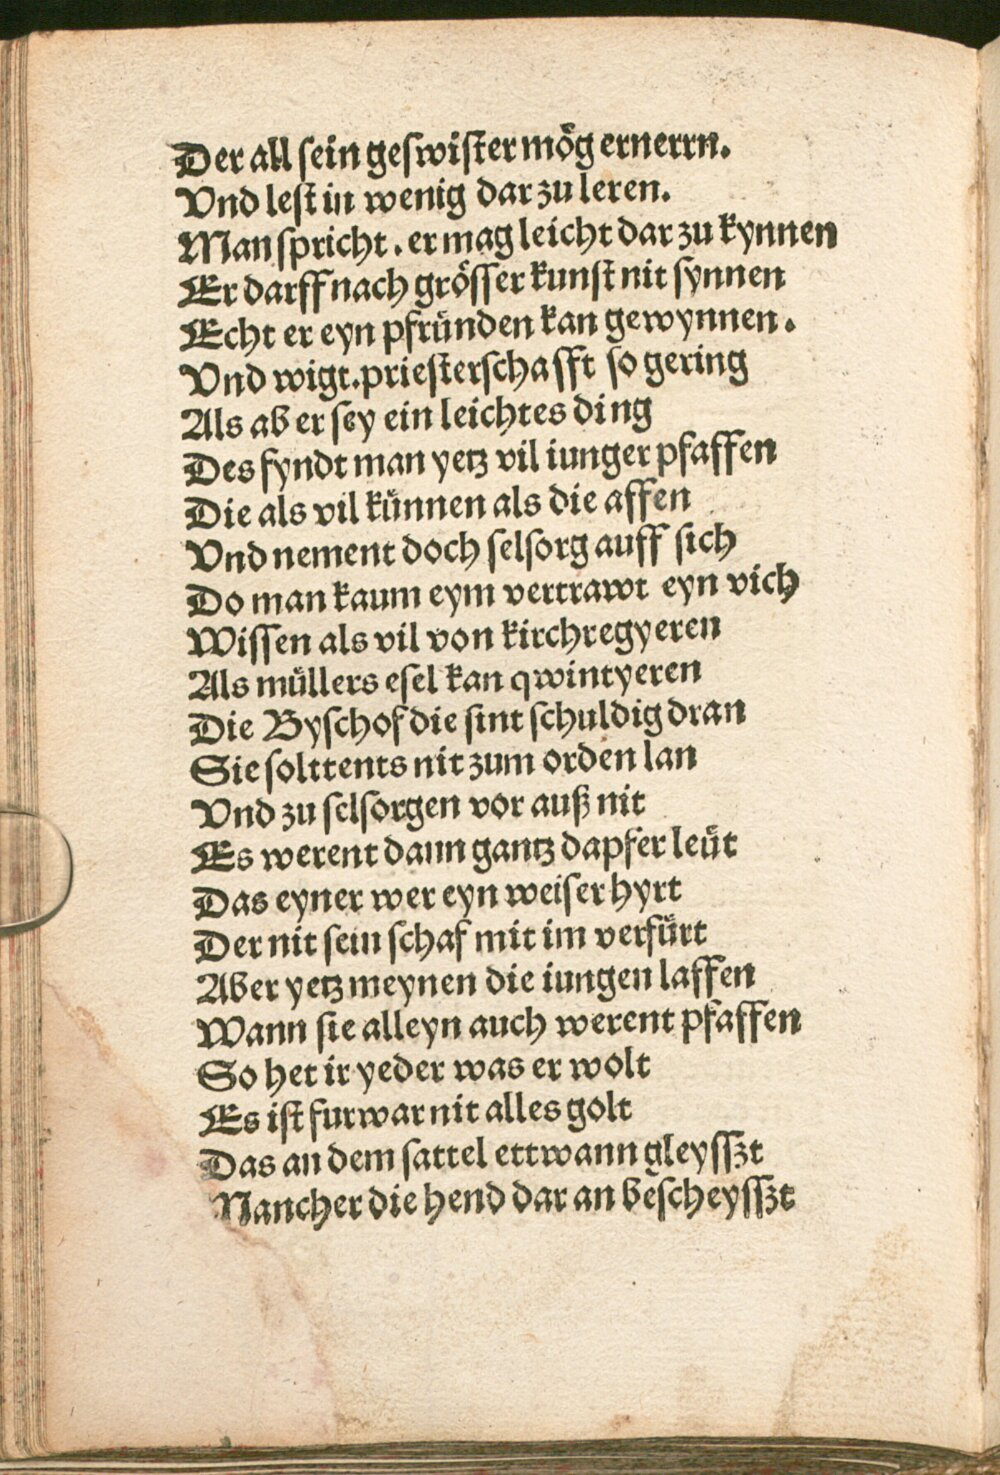 Der all ſein geſwiſter moͤg ernerrn.
Vnd leſt in wenig dar zu leren.
Man ſpricht. er mag leicht dar zu kynnen
Er darff nach groͤſſer kunſt nit ſynnen
Echt er eyn pfruͤnden kan gewynnen.
Vnd wigt. prieſterſchafft ſo gering
Als ab er ſey ein leichtes ding
Des fyndt man yetz vil iunger pfaffen
Die als vil kuͤnnen als die affen
Vnd nement doch ſelſorg auff ſich
Do man kaum eym vertrawt eyn vich
Wiſſen als vil von kirchregyeren
Als muͤllers eſel kan qwintyeren
Die Byſchof die ſint ſchuldig dran
Sie ſolttents nit zum orden lan
Vnd zu ſelſorgen vor auß nit
Es werent dann gantz dapfer leuͤt
Das eyner wer eyn weiſer hyrt
Der nit ſein ſchaf mit im verfuͤrt
Aber yetz meynen die iungen laffen
Wann ſie alleyn auch werent pfaffen
So het ir yeder was er wolt
Es iſt furwar nit alles golt
Das an dem ſattel ettwann gleyſſzt
Mancher die hend dar an beſcheyſſzt